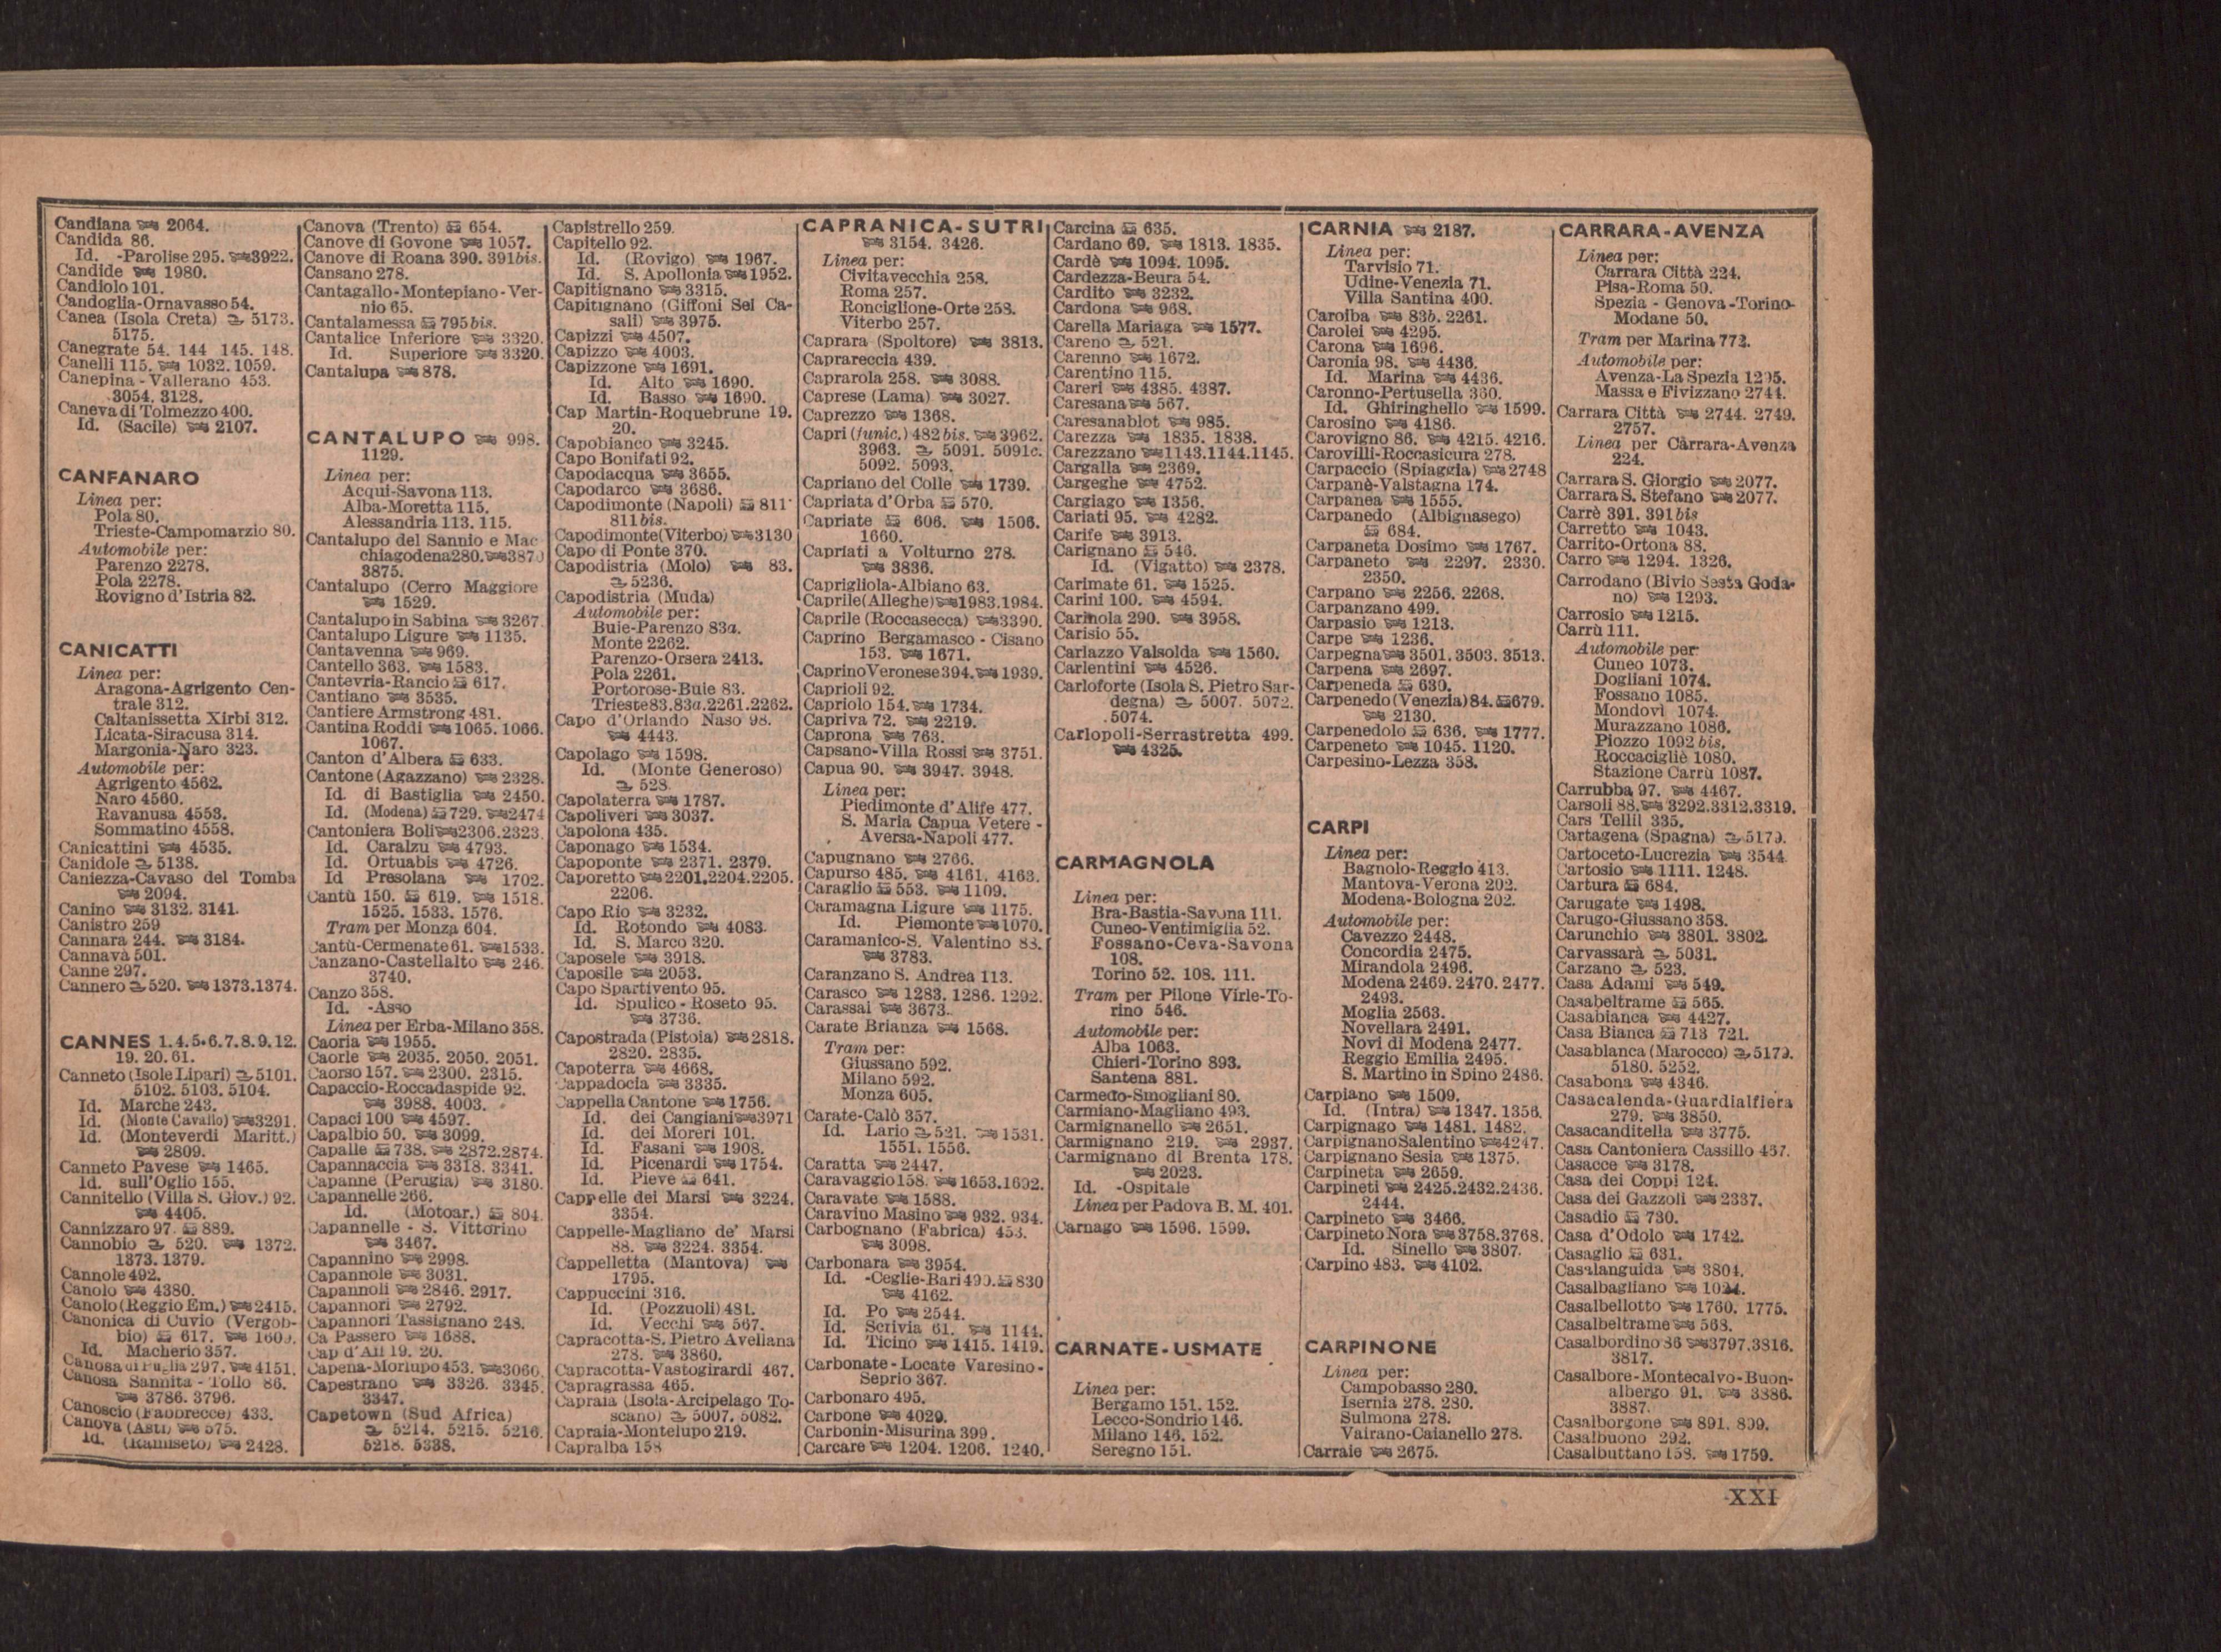 Candiana 2064.
Candida 86.
Id. -Parolise 295. 3922.
Candide 1980.
Candiolo 101.
Candoglia-Ornavasso 54.
Canea (Isola Creta) 5173.
5175.
Canegrate 54. 144 145. 148.
Canelli 115. 1032. 1059.
Canepina - Vallerano 453.
3054. 3128.
Caneva di Tolmezzo 400.
Id. (Sacile) 2107.
CANFANARO
Linea per:
Pola 80.
Trieste-Campomarzio 80.
Automobile per:
Parenzo 2278.
Pola 2278.
Rovigno d'Istria 82.
CANICATTI
Linea per:
Aragona-Agrigento Cen-
trale 312.
Caltanissetta Xirbi 312.
Licata-Siracusa 314.
Margonia-Naro 323.
Automobile per:
Agrigento 4562.
Naro 4560.
Ravanusa 4553.
Sommatino 4558.
Canicattini 4535.
Canidole 5138.
Caniezza-Cavaso del Tomba
2094.
Canino 3132. 3141.
Canistro 259
Cannara 244. 3184.
Cannavà 501.
Canne 297.
Cannero 520. 1373.1374.
CANNES 1.4.5.6.7.8.9.12.
19. 20. 61.
Canneto (Isole Lipari) 5101.
5102. 5103. 5104.
Id. Marche 243.
Id. (Monte Cavallo) 3291.
Id. (Monteverdi Maritt.)
2809.
Canneto Pavese 1465.
Id. sull'Oglio 155.
Cannitello (Villa S. Giov.) 92.
4405.
Cannizzaro 97. 889.
Cannobio 520. 1372.
1373. 1379.
Cannole 492.
Canolo 4380.
Canolo (Reggio Em.) 2415.
Canonica di Cuvio (Vergob-
bio) 617.
Id. Macherio 357.
Canosa di Puglia 297. 4151.
Canosa Sannita - Tollo 86.
3786. 3796.
Canoscio (Fabbrecce) 433.
Canova (Asti) 575.
Id. (Ramiseto) 2428.
Canova (Trento) 654.
Canove di Govone 1057.
Canove di Roana 390. 391bis.
Cansano 278.
Cantagallo-Montepiano-Ver-
nio 65.
Cantalamessa 795 bis.
Cantalice Inferiore 3320.
Id. Superiore 3320.
Cantalupa 878.
CANTALUPO 998.
1129.
Linea per:
Acqui-Savona 113.
Alba-Moretta 115.
Alessandria 113. 115.
Cantalupo del Sannio e Mac
chiagodena 280.
3875.
Cantalupo (Cerro Maggiore
1529.
Cantalupo in Sabina 3267.
Cantalupo Ligure 1135.
Cantavenna 969.
Cantello 363. 1583.
Cantevria-Rancio 617.
Cantiano 3535.
Cantiere Armstrong 481.
Cantina Roddi 1065. 1066.
1067.
Canton d'Albera 633.
Cantone (Agazzano) 2328.
Id. di Bastiglia 2450.
Id. (Modena) 729. 2474
Cantoniera Boli 2306.2323.
Id. Caralzu 4793.
Id. Ortuabis 4726.
Id Presolana 1702.
Cantù 150. 619. 1518.
1525. 1533. 1576.
Tram per Monza 604.
Cantù-Cermenate 61. 1533.
Canzano-Castellalto 246.
3740.
Canzo 358.
Id. -Asso
Linea per Erba-Milano 358.
Caoria 1955.
Caorle 2035. 2050. 2051.
Caorso 157. 2300. 2315.
Capaccio-Roccadaspide 92.
3988. 4003.
Capaci 100 4597.
Capalbio 50. 3099.
Capalle 738. 2872.2874.
Capannaccia 3318. 3341.
Capanne (Perugia) 3180.
Capannelle 266.
Id. (Motoar.) 804.
Capannelle - S. Vittorino
3467.
Capannino 2998.
Capannole 3031.
Capannoli 2846. 2917.
Capannori 2792.
Capannori Tassignano 248.
Ca Passero 1688.
Cap d'Ail 19. 20.
Capena-Morlupo 453. 3060.
Capestrano 3326. 3345.
3347.
Capetown (Sud Africa)
5214. 5215. 5216.
5218. 5338.
Capistrello 259.
Capitello 92.
Id. (Rovigo) 1967.
Id. S. Apollonia 1952.
Capitignano 3315.
Capitignano (Giffoni Sei Ca-
sali) 3975.
Capizzi 4507.
Capizzo 4003.
Capizzone 1691.
Id. Alto 1690.
Id. Basso 1690.
Cap Martin-Roquebrune 19.
20.
Capobianco 3245.
Capo Bonifati 92.
Capodacqua 3655.
Capodarco 3686.
Capodimonte (Napoli) 811
811bis.
Capodimonte (Viterbo) 3130
Capo di Ponte 370.
Capodistria (Molo) 83.
5236.
Capodistria (Muda)
Automobile per:
Buie-Parenzo 83a.
Monte 2262.
Parenzo-Orsera 2413.
Pola 2261.
Portorose-Buie 83.
Trieste 83.83a.2261.2262.
Capo d'Orlando Naso 98.
4443.
Capolago 1598.
Id. (Monte Generoso)
528.
Capolaterra 1787.
Capoliveri 3037.
Capolona 435.
Caponago 1534.
Capoponte 2371. 2379.
Caporetto 2201.2204.2205.
2206.
Capo Rio 3232.
Id. Rotondo 4083.
Id. S. Marco 320.
Caposele 3918.
Caposile 2053.
Capo Spartivento 95.
Id. Spulico - Roseto 95.
3736.
Capostrada (Pistoia) 2818.
2820. 2835.
Capoterra 4668.
Cappadocia 3335.
Cappella Cantone 1756.
Id. dei Cangiani 3971
Id. dei Moreri 101.
Id. Fasani 1908.
Id. Picenardi 1754.
Id. Pieve 641.
Cappelle dei Marsi 3224.
3354.
Cappelle-Magliano de' Marsi
88. 3224. 3354.
Cappelletta (Mantova)
1795.
Cappuccini 316.
Id. (Pozzuoli) 481.
Id. Vecchi 567.
Capracotta-S. Pietro Avellana
278. 3860.
Capracotta-Vastogirardi 467.
Capragrassa 465.
Capraia (Isola-Arcipelago To-
scano) 5007. 5082.
Capraia-Montelupo 219.
Capralba 158
CAPRANICA-SUTRI
3154. 3426.
Linea per:
Civitavecchia 258.
Roma 257.
Ronciglione-Orte 258.
Viterbo 257.
Caprara (Spoltore) 3813.
Caprareccia 439.
Caprarola 258. 3088.
Caprese (Lama) 3027.
Caprezzo 1368.
Capri (funic.) 482 bis. 3962.
3963. 5091. 5091c.
5092. 5093.
Capriano del Colle 1739.
Capriata d'Orba 570.
Capriate 606. 1506.
1660.
Capriati a Volturno 278.
3836.
Caprigliola-Albiano 63.
Caprile (Alleghe) 1983.1984.
Caprile (Roccasecca) 3390.
Caprino Bergamasco - Cisano
153. 1671.
Caprino Veronese 394. 1939.
Caprioli 92.
Capriolo 154. 1734.
Capriva 72. 2219.
Caprona 763.
Capsano-Villa Rossi 3751.
Capua 90. 3947. 3948.
Linea per:
Piedimonte d'Alife 477.
S. Maria Capua Vetere -
Aversa-Napoli 477.
Capugnano 2766.
Capurso 485. 4161. 4163.
Caraglio 553. 1109.
Caramagna Ligure 1175.
Id. Piemonte 1070.
Caramanico-S. Valentino 88.
3783.
Caranzano S. Andrea 113.
Carasco 1283. 1286. 1292.
Carassai 3673.
Carate Brianza 1568.
Tram per:
Giussano 592.
Milano 592.
Monza 605.
Carate-Calò 357.
Id. Lario 521. 1531.
1551. 1556.
Caratta 2447.
Caravaggio 158. 1653.1692.
Caravate 1588.
Caravino Masino 932. 934.
Carbognano (Fabrica) 453.
3098.
Carbonara 3954.
Id. -Ceglie-Bari 490. 830
4162.
Id. Po 2544.
Id. Scrivia 61. 1144.
Id. Ticino 1415. 1419.
Carbonate - Locate Varesino -
Seprio 367.
Carbonaro 495.
Carbone 4029.
Carbonin-Misurina 399.
Carcare 1204. 1206. 1240.
Carcina 635.
Cardano 69. 1813. 1835.
Cardè 1094. 1095.
Cardezza-Beura 54.
Cardito 3232.
Cardona 968.
Carella Mariaga 1577.
Careno 521.
Carenno 1672.
Carentino 115.
Careri 4385. 4387.
Caresana 567.
Caresanablot 985.
Carezza 1835. 1838.
Carezzano 1143.1144.1145.
Cargalla 2369.
Cargeghe 4752.
Cargiago 1356.
Cariati 95. 4282.
Carife 3913.
Carignano 546.
Id. (Vigatto) 2378.
Carimate 61. 1525.
Carini 100. 4594.
Carinola 290. 3958.
Carisio 55.
Carlazzo Valsolda 1560.
Carlentini 4526.
Carloforte (Isola S. Pietro Sar-
degna) 5007. 5072.
5074.
Carlopoli-Serrastretta 499.
4325.
CARMAGNOLA
Linea per:
Bra-Bastia-Savona 111.
Cuneo-Ventimiglia 52.
Fossano-Ceva-Savona
108.
Torino 52. 108. 111.
Tram per Pilone Virle-To-
rino 546.
Automobile per:
Alba 1063.
Chieri-Torino 893.
Santena 881.
Carmedo-Smogliani 80.
Carmiano-Magliano 493.
Carmignanello 2651.
Carmignano 219. 2937.
Carmignano di Brenta 178.
2023.
Id. -Ospitale
Linea per Padova B. M. 401.
Carnago 1596. 1599.
CARNATE-USMATE
Linea per:
Bergamo 151. 152.
Lecco-Sondrio 146.
Milano 146. 152.
Seregno 151.
CARNIA 2187.
Linea per:
Tarvisio 71.
Udine-Venezia 71.
Villa Santina 400.
Caroiba 83b. 2261.
Carolei 4295.
Carona 1696.
Caronia 98. 4436.
Id. Marina 4436.
Caronno-Pertusella 360.
Id. Ghiringhello 1599.
Carosino 4186.
Carovigno 86. 4215. 4216.
Carovilli-Roccasicura 278.
Carpaccio (Spiaggia) 2748
Carpanè-Valstagna 174.
Carpanea 1555.
Carpanedo (Albignasego)
684.
Carpaneta Dosimo 1767.
Carpaneto 2297. 2330.
2350.
Carpano 2256. 2268.
Carpanzano 499.
Carpasio 1213.
Carpe 1236.
Carpegna 3501. 3503. 3513.
Carpena 2697.
Carpeneda 630.
Carpenedo (Venezia) 84. 679.
2130.
Carpenedolo 636. 1777.
Carpeneto 1045. 1120.
Carpesino-Lezza 358.
CARPI
Linea per:
Bagnolo-Reggio 413.
Mantova-Verona 202.
Modena-Bologna 202.
Automobile per:
Cavezzo 2448.
Concordia 2475.
Mirandola 2496.
Modena 2469. 2470. 2477.
2493.
Moglia 2563.
Novellara 2491.
Novi di Modena 2477.
Reggio Emilia 2495.
S. Martino in Spino 2486.
Carpiano 1509.
Id. (Intra) 1347. 1356.
Carpignago 1481. 1482.
Carpignano Salentino 4247.
Carpignano Sesia 1375.
Carpineta 2659.
Carpineti 2425.2432.2436.
2444.
Carpineto 3466.
Carpineto Nora 3758.3768.
Id. Sinello 3807.
Carpino 483. 4102.
CARPINONE
Linea per:
Campobasso 280.
Isernia 278. 280.
Sulmona 278.
Vairano-Caianello 278.
Carraie 2675.
CARRARA-AVENZA
Linea per:
Carrara Città 224.
Pisa-Roma 50.
Spezia - Genova-Torino-
Modane 50.
Tram per Marina 772.
Automobile per:
Avenza-La Spezia 1295.
Massa e Fivizzano 2744.
Carrara Città 2744. 2749.
2757.
Linea per Carrara-Avenza
224.
Carrara S. Giorgio 2077.
Carrara S. Stefano 2077.
Carrè 391. 391bis
Carretto 1043.
Carrito-Ortona 88.
Carro 1294. 1326.
Carrodano (Bivio Sesta Goda-
no) 1293.
Carrosio 1215.
Carrù 111.
Automobile per
Cuneo 1073.
Dogliani 1074.
Fossano 1085.
Mondovì 1074.
Murazzano 1086.
Piozzo 1092 bis.
Roccacigliè 1080.
Stazione Carrù 1087.
Carrubba 97. 4467.
Carsoli 88. 3292.3312.3319.
Cars Tellil 335.
Cartagena (Spagna) 5179.
Cartoceto-Lucrezia 3544.
Cartosio 1111. 1248.
Cartura 684.
Carugate 1498.
Carugo-Giussano 358.
Carunchio 3801. 3802.
Carvassarà 5031.
Carzano 523.
Casa Adami 549.
Casabeltrame 565.
Casabianca 4427.
Casa Bianca 713 721.
Casablanca (Marocco) 5179.
5180. 5252.
Casabona 4346.
Casacalenda-Guardialfiera
279. 3850.
Casacanditella 3775.
Casa Cantoniera Cassillo 457.
Casacce 3178.
Casa dei Coppi 124.
Casa dei Gazzoli 2337.
Casadio 730.
Casa d'Odolo 1742.
Casaglio 631.
Casalanguida 3804.
Casalbagliano 1024.
Casalbellotto 1760. 1775.
Casalbeltrame 568.
Casalbordino 86 3797.3816.
3817.
Casalbore-Montecalvo-Buon-
albergo 91. 3886.
3887.
Casalborgone 891. 899.
Casalbuono 292.
Casalbuttano 158. 1759.
XXI